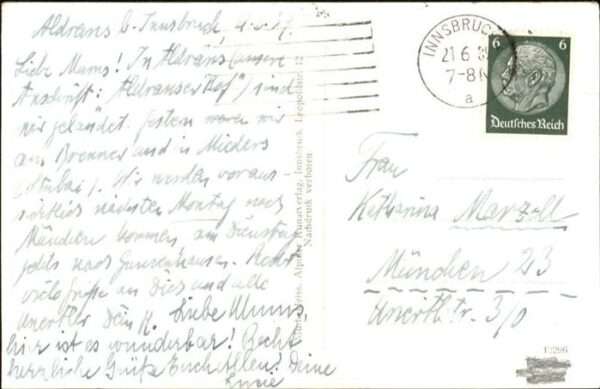 Aldrans b. Innsbruck,
Liebe Mums! In Aldrans (unsere
Anschrift: "Aldranser Hof") sind
wir gelandet. Gestern waren wir
am Brenner und in Mieders
(Stubai). Wir werden voraus-
sichtlich nächsten Montag nach
München kommen, am Dienstag
nach Gunzenhausen. Recht
viele Grüße an Dich und alle
Dein H. Liebe Mums,
hier ist es wunderbar! Recht
herzliche Grüße Euch allen! Deine
INNSBRUCK
21.6.
7-8
a
6 6
Deutsches Reich
Frau
Katharina Marzell
München 23
3/0
Alpiner Kunstverlag, Innsbruck, Leopoldstr. 12
Nachdruck verboten